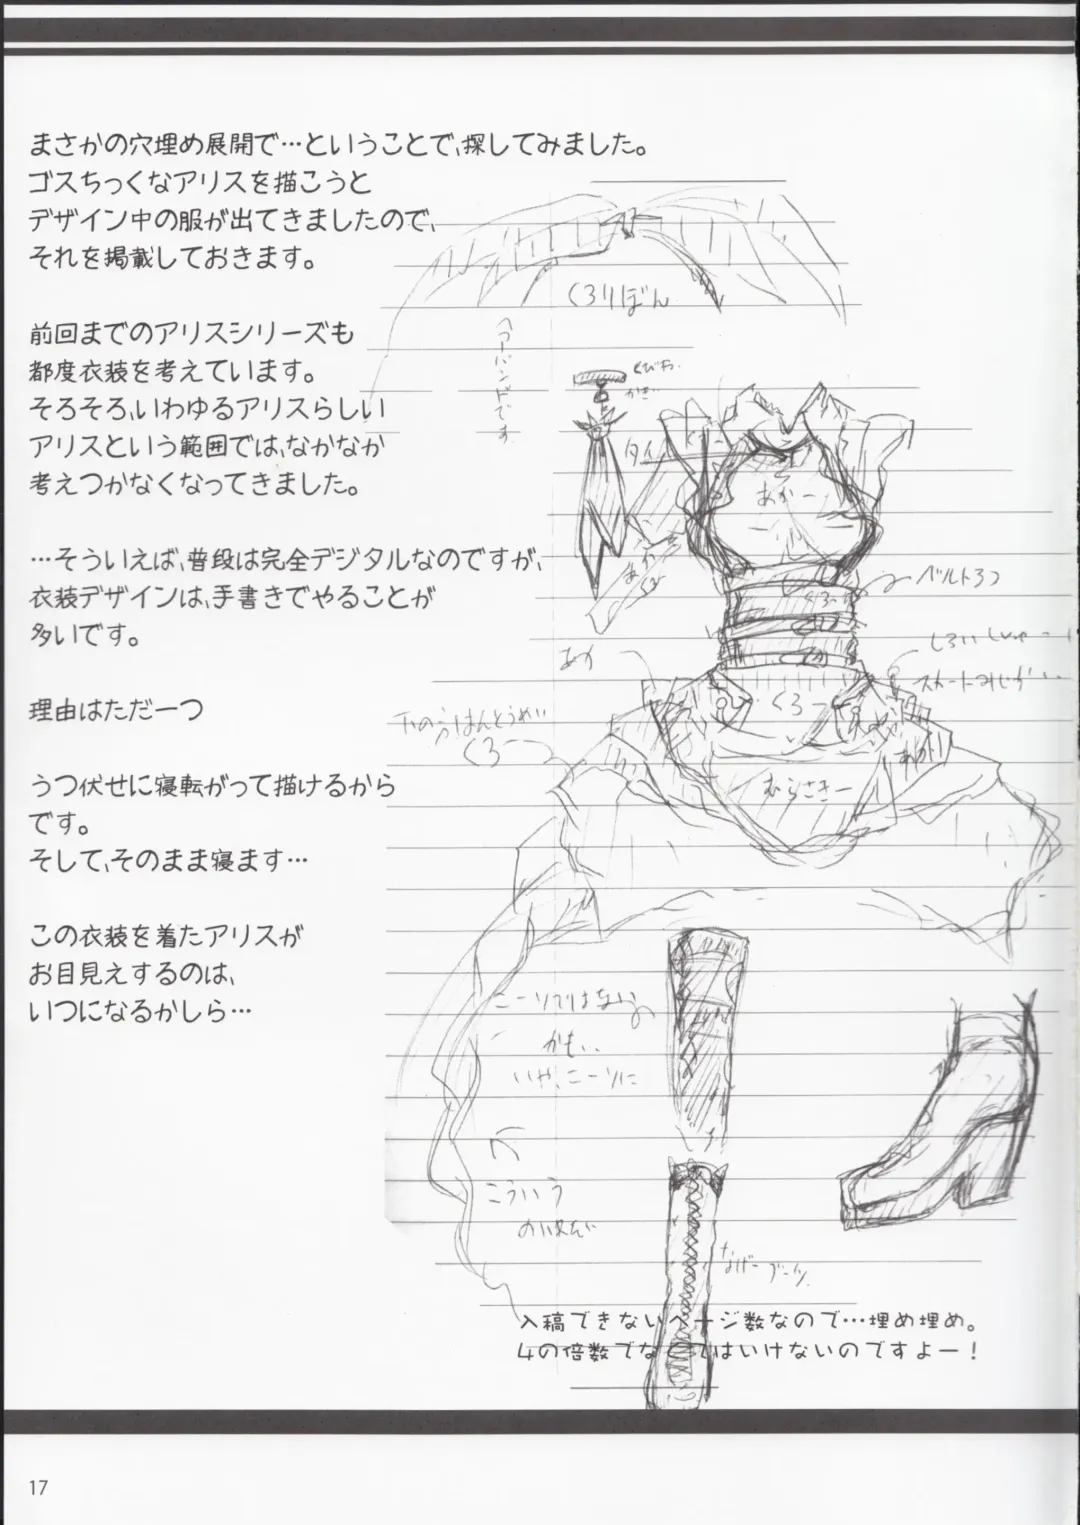 まさかの穴埋め展開で…ということで、探してみました。
ゴスちっくなアリスを描こうと
デザイン中の服が出てきましたので、
それを掲載しておきます。
前回までのアリスシリーズも
都度衣装を考えています。
そろそろ、いわゆるアリスらしい
アリスという範囲では、なかなか
考えつかなくなってきました。
…そういえば、普段は完全デジタルなのですが、
衣装デザインは、手書きでやることが
多いです。
理由はただ一つ
うつ伏せに寝転がって描けるから
です。
そして、そのまま寝ます…
この衣装を着たアリスが
お目見えするのは、
いつになるかしら…
くろりぼん
ヘアーバンドです
くびわ
かぎ
タイ
あかー
ベルト3つ
くろー
あか
しろいしゃー
スカートみじかい
くろー
下のうはんとうめい
くろー
むらさきー
ニーソではない
かも..
いや、ニーソに
こういう
のはだ
なげーブーツ
入稿できないページ数なので…埋め埋め。
4の倍数でなくてはいけないのですよー！
17